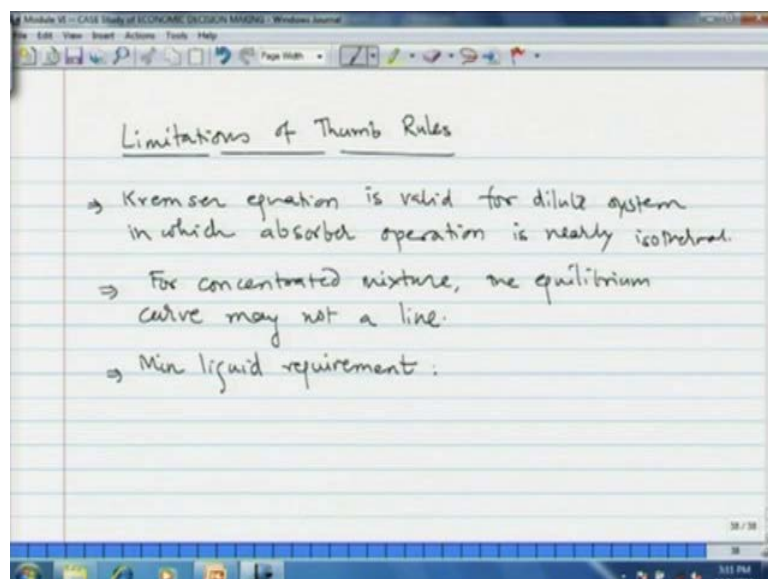 Module VI - CASE Study of ECONOMIC DECISION MAKING - Windows Journal
File Edit View Insert Actions Tools Help
Page Width
Limitations of Thumb Rules
⇒ Kremser equation is valid for dilute system
in which absorber operation is nearly isothermal.
⇒ For concentrated mixture, the equilibrium
curve may not a line.
⇒ Min liquid requirement :
38 / 38
38
3:13 PM